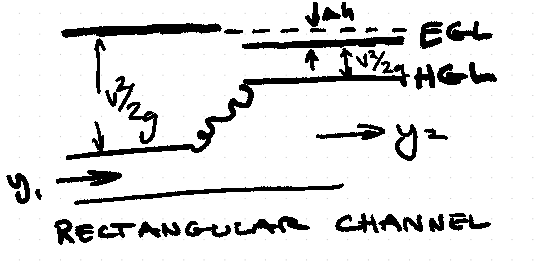 Δh
EGL
V²/2g
V²/2g
HGL
y₁
y₂
RECTANGULAR CHANNEL